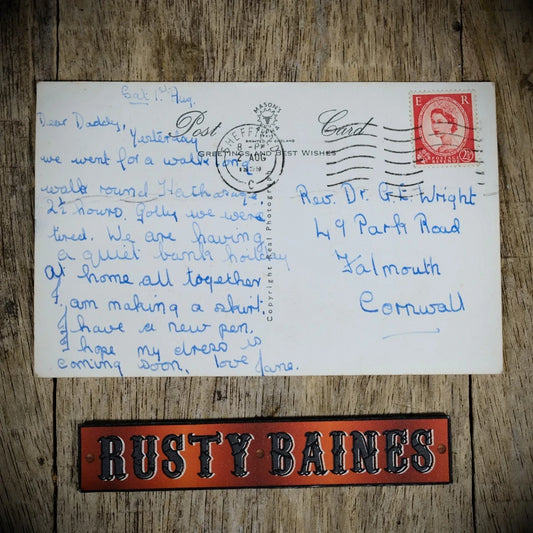 Sat 1st Aug.
Dear Daddy,
Yesterday
we went for a walk long
walk round Hathersage
2½ hours. Golly we were
tired. We are having
a quiet bank holiday
at home all together
I am making a skirt.
I have a new pen.
I hope my dress is
coming soon. love Jane.
Post Card
MASON'S
GREETINGS AND BEST WISHES
Copyright Real Photograph
SHEFFIELD
8-PM
AUG
C
E R
2½D
Rev. Dr. G.E. Wright
49 Park Road
Falmouth
Cornwall
RUSTY BAINES